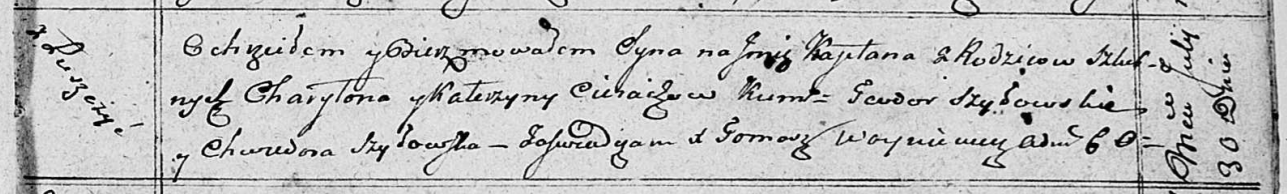 z Ruszczyć
Ochrzciłem y Bierzmowałem Syna na Jmię Kajetana z Rodzicow Szlub-
nych Charytona y Katerzyny Cierachow Kum= Teodor Szyłowskie
y Chwedora Szyłowska – Zaswiadczam X Tomasz Woyniewicz Adm
w Mcu Julij
30 Dnia